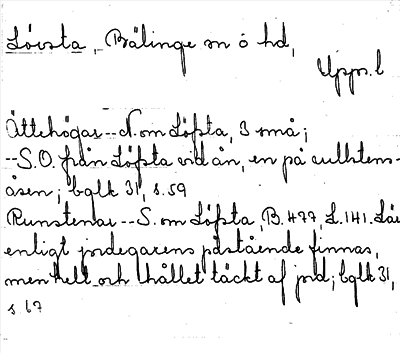 Lövsta, Bälinge sn o hd,
Upps. l
Ättehögar -- N. om Löfsta, 3 små;
-- S.O. från Löfsta vid ån, en på rullstens-
åsen; bglk 31, s. 59
Runstenar -- S. om Löfsta, B. 477, L. 141. Lär
enligt jordegarens påstående finnas,
men hell och hållet täckt af jord; bglk 31,
s. 67